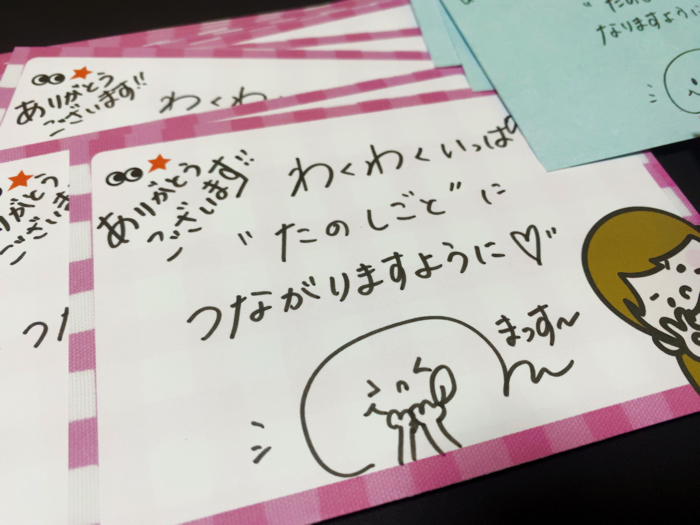 ありがとう
ございます!!
わくわく
ありがとう
ございます!!
わくわくいっぱ
"たのしごと"に
つながりますように♡"
まっす〜
がとう
ございます
つな
"たのし
なりますように